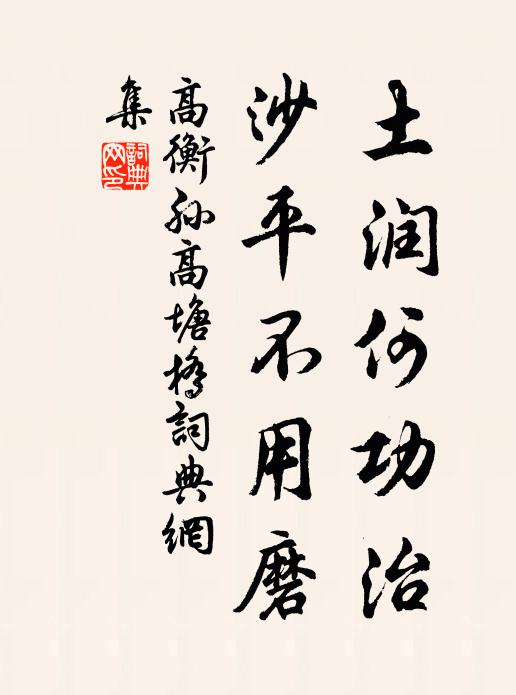 土润何功治
沙平不用磨
高衡孙高塘橋詞典網
集
詞典
网印